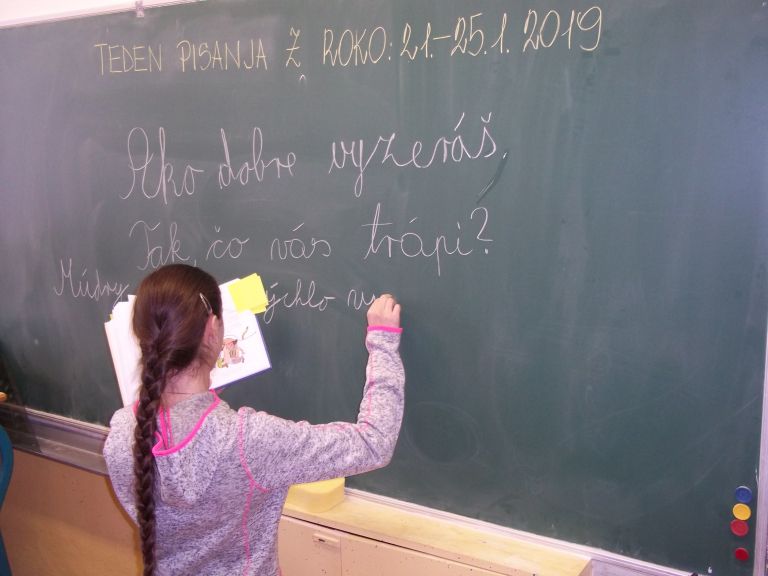 TEDEN PISANJA Z ROKO: 21.-25.1. 2019
Ako dobre vyzeráš.
Tak, čo vás trápi?
Múdry ýchlo vy